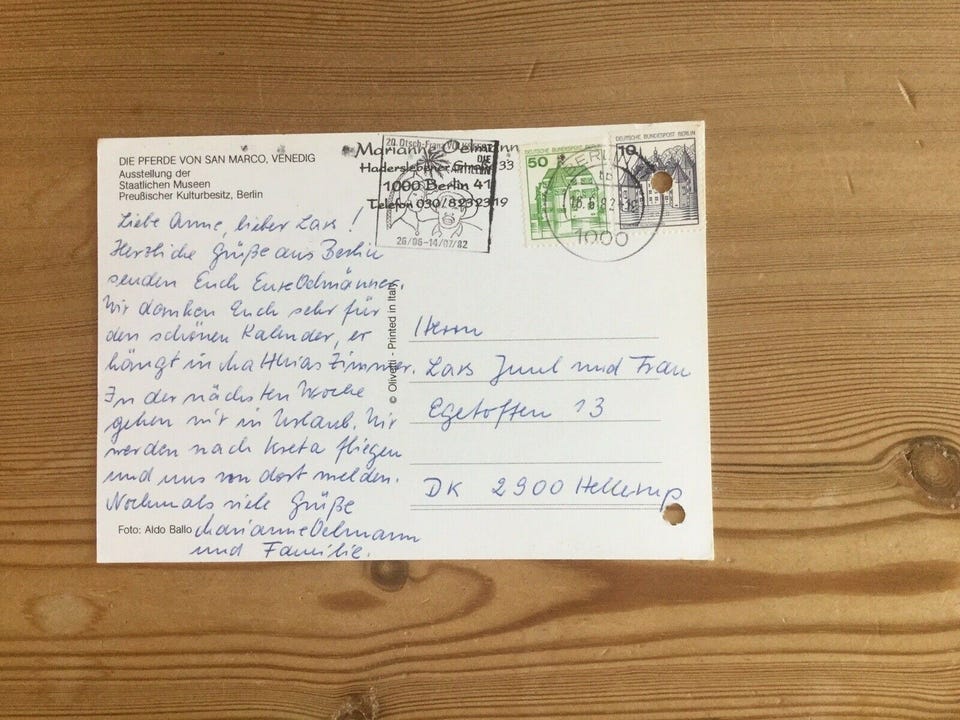 DIE PFERDE VON SAN MARCO, VENEDIG
Ausstellung der
Staatlichen Museen
Preußischer Kulturbesitz, Berlin
Liebe Anne, lieber Lars!
Herzliche Grüße aus Berlin
senden Euch Eure Oelmänner.
Wir danken Euch sehr für
den schönen Kalender, er
hängt in Matthias Zimmer.
In der nächsten Woche
gehen wir in Urlaub. Wir
werden nach Kreta fliegen
und uns von dort melden.
Nochmals viele Grüße
Marianne Oelmann
und Familie.
Foto: Aldo Ballo
© Olivetti - Printed in Italy
Marianne Oelmann
Haderslebener Straße 33
1000 Berlin 41
Telefon 030/8232319
20. Dtsch.-Franz. Volksfest
26/06-14/07/82
50
DEUTSCHE BUNDESPOST BERLIN
10
BERLIN
1000
Herrn
Lars Juul und Frau
Egetoften 13
DK 2900 Hellerup